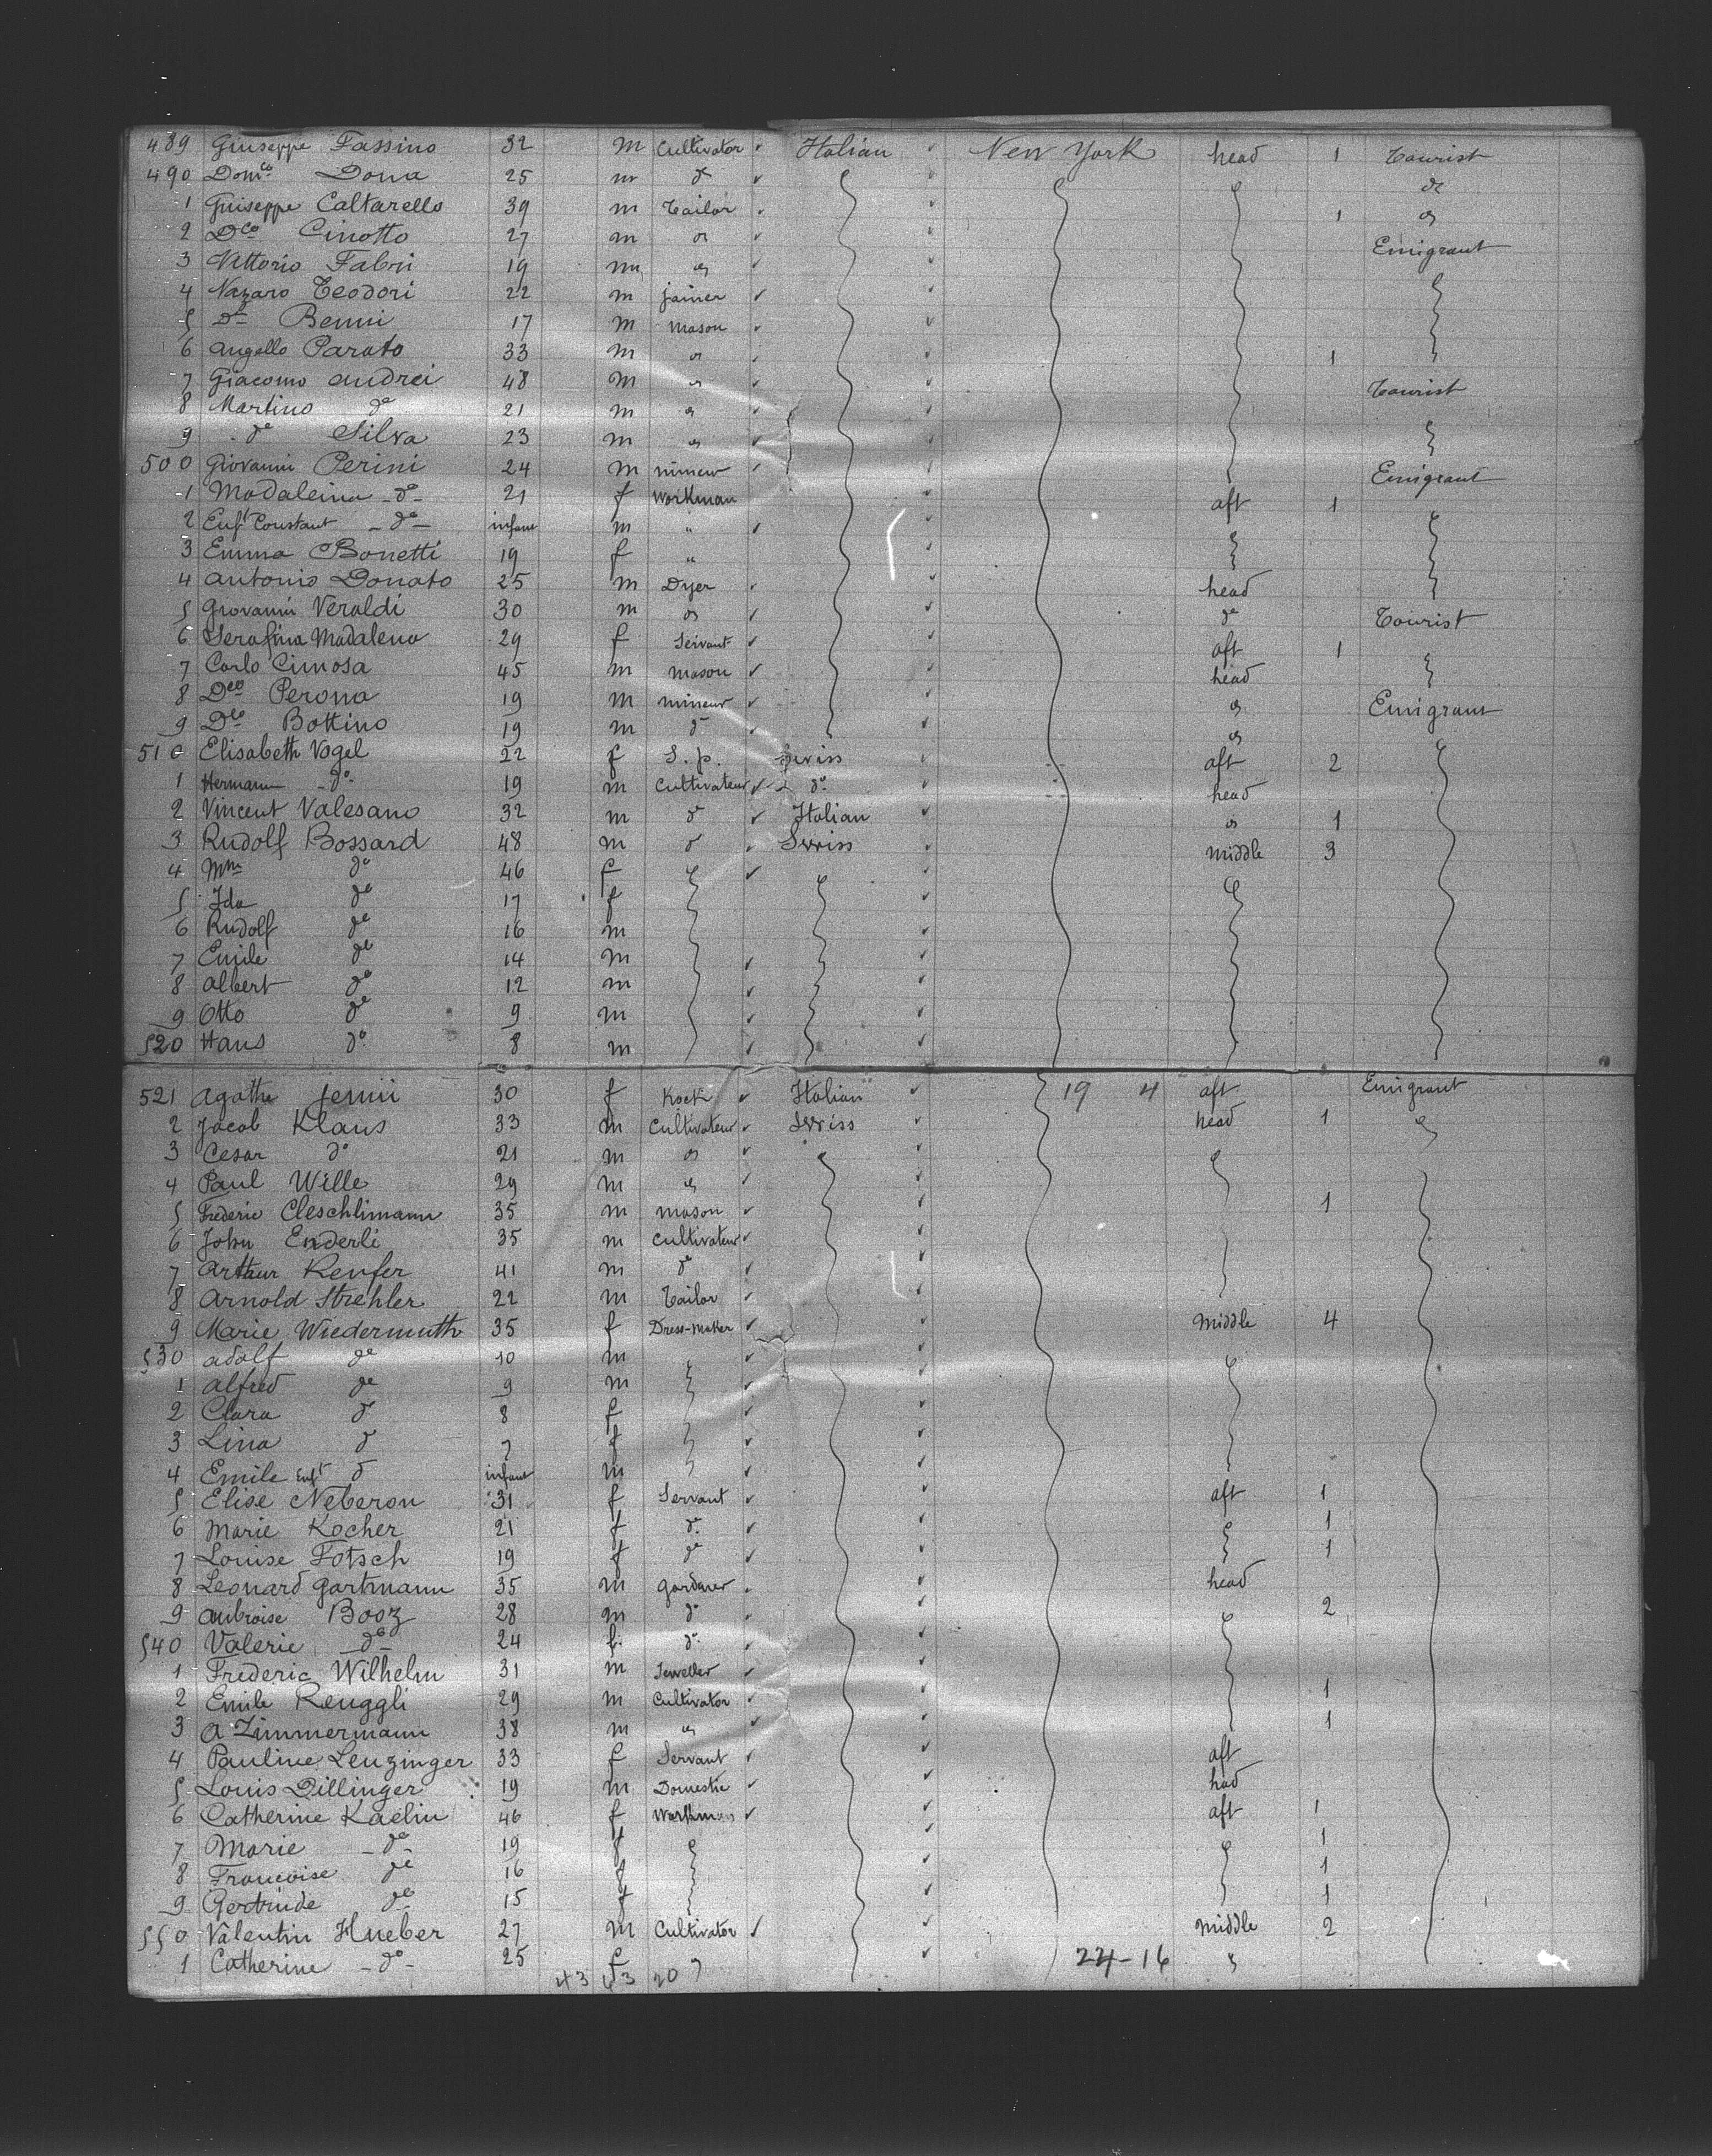 489 Giuseppe Fassino 32 m Cultivator Italian New York head 1 Tourist
490 Domco Dona 25 m do do
1 Guiseppe Caltarello 39 m Tailor 1 do
2 Dco Cinotto 27 m do Emigrant
3 Vittorio Fabri 19 m do
4 Nazaro Teodori 22 m joiner
5 do Benni 17 m mason
6 Angello Parato 33 m do 1
7 Giacomo Andrei 48 m do Tourist
8 Martino do 21 m do
9 do Silva 23 m do
500 Giovanni Perini 24 m mineur Emigrant
1 Madaleina do 21 f workman aft 1
2 Enft Constant do infant m "
3 Emma Bonetti 19 f "
4 Antonio Donato 25 m Dyer head
5 Giovanni Veraldi 30 m do do Tourist
6 Serafina Madalena 29 f Servant aft 1
7 Carlo Cimosa 45 m mason head
8 Dco Perona 19 m mineur do Emigrant
9 Dco Bottino 19 m do do
510 Elisabeth Vogel 22 f S.p. Swiss aft 2
1 Hermann do 19 m Cultivateur do head
2 Vincent Valesano 32 m do Italian do 1
3 Rudolf Bossard 48 m do Swiss middle 3
4 Mme do 46 f
5 Ida do 17 f
6 Rudolf do 16 m
7 Emile do 14 m
8 Albert do 12 m
9 Otto do 9 m
520 Hans do 8 m
521 Agathe Jenni 30 f Kock Italian 19 4 aft Emigrant
2 Jacob Klaus 33 m Cultivateur Swiss head 1
3 Cesar do 21 m do
4 Paul Wille 29 m do
5 Frederic Cleschlimann 35 m mason 1
6 John Enderli 35 m Cultivateur
7 Arthur Renfer 41 m do
8 Arnold Strehler 22 m Tailor
9 Marie Wiedermuth 35 f Dress-Maker middle 4
530 Adolf do 10 m
1 Alfred do 9 m
2 Clara do 8 f
3 Lina do 7 f
4 Emile Enft do infant m
5 Elise Neberon 31 f Servant aft 1
6 Marie Kocher 21 f do 1
7 Louise Fotsch 19 f do 1
8 Leonard Gartmann 35 m gardner head
9 Ambroise Booz 28 m do 2
540 Valerie do 24 f. do
1 Frederic Wilhelm 31 m Jeweller
2 Emile Renggli 29 m Cultivator 1
3 A Zimmermann 38 m do 1
4 Pauline Leuzinger 33 f Servant aft
5 Louis Dillinger 19 m Domestic head
6 Catherine Kaelin 46 f Workman aft 1
7 Marie do 19 f 1
8 Francoise do 16 f 1
9 Gertrude do 15 f 1
550 Valentin Hueber 27 m Cultivator middle 2
1 Catherine do 25 f 24-16 "
43 63 20 7